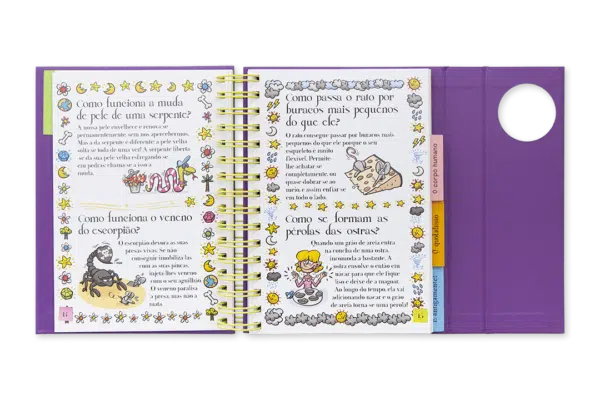 Como funciona a muda
de pele de uma serpente?
A nossa pele envelhece e renova-se
permanentemente sem nos apercebermos.
Mas a da serpente é diferente: a pele velha
solta-se toda de uma vez! A serpente liberta-
se da sua pele velha esfregando-se
em pedras: chama-se a isso a
muda.
Como funciona o veneno
do escorpião?
O escorpião devora as suas
presas vivas. Se não
conseguir imobilizá-las
com as suas pinças,
injeta-lhes veneno
com o seu aguilhão.
O veneno paralisa
a presa, mas não a
mata.
Como passa o rato por
buracos mais pequenos
do que ele?
O rato consegue passar por buracos mais
pequenos do que ele porque o seu
esqueleto é muito
flexível. Permite-
lhe achatar-se
completamente, ou
quase dobrar-se ao
meio, e assim enfiar-se
em todo o lado.
Como se formam as
pérolas das ostras?
Quando um grão de areia entra
na concha de uma ostra,
incomoda-a bastante. A
ostra envolve-o então em
nácar para que ele fique
liso e deixe de a magoar.
Ao longo do tempo, ela vai
adicionando nácar e o grão
de areia torna-se uma pérola!
O corpo humano
O quotidiano